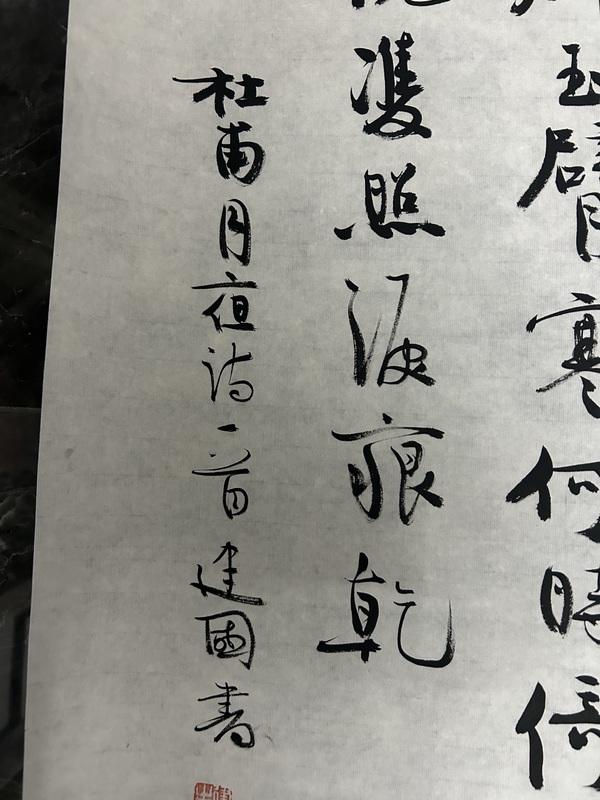 玉臂寒何時倚
雙照淚痕乾
杜甫月夜詩一首建國書